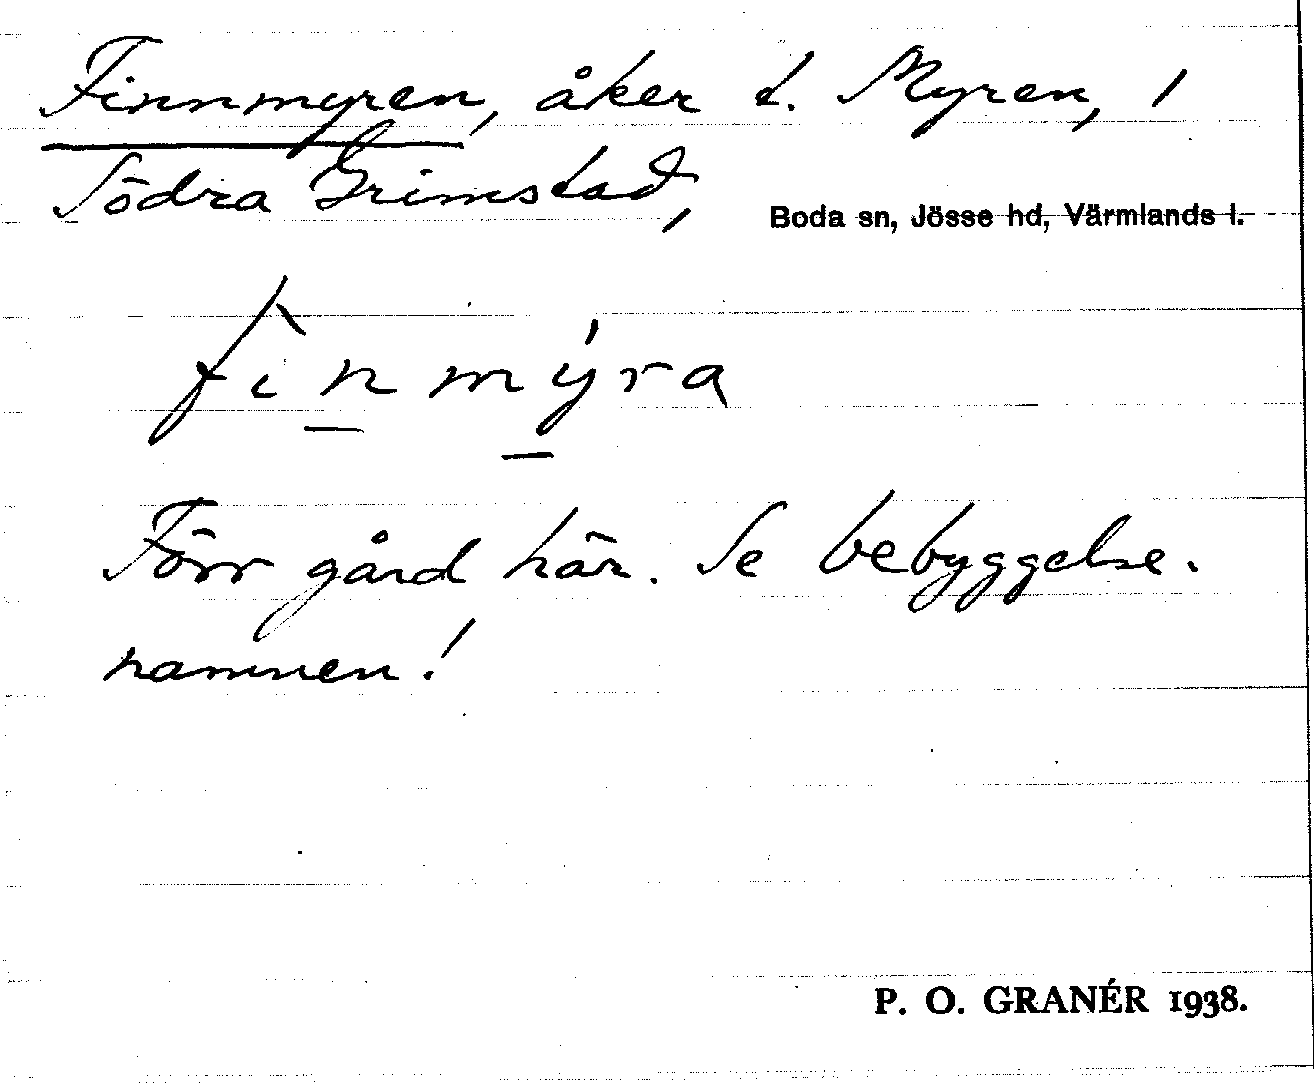 Finnmyren, åker t. Myren, 1
Södra Grimstad,
Boda sn, Jösse hd, Värmlands l.
fìn̲mý̲ra
Förr gård här. Se bebyggelse-
namnen!
P. O. GRANÉR 1938.